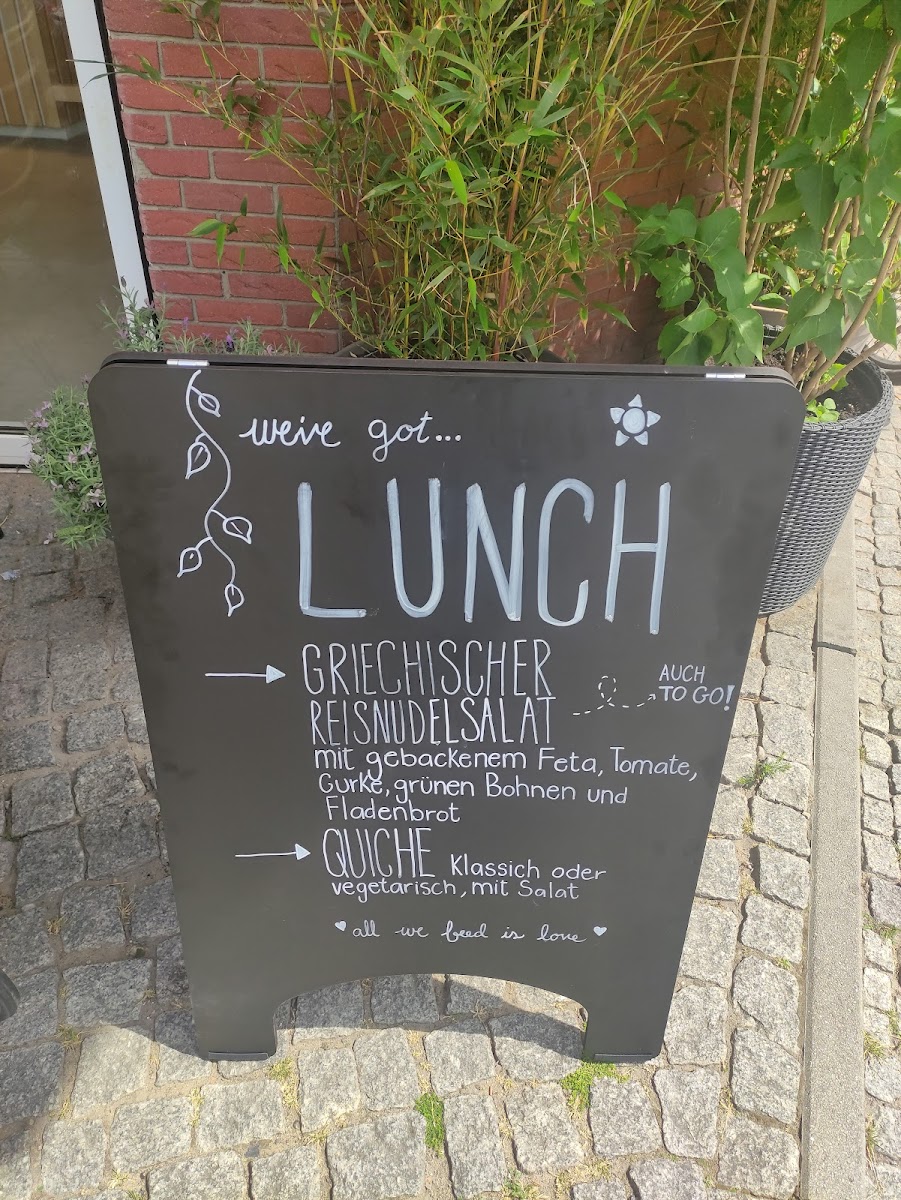 weive got...
LUNCH
GRIECHISCHER
REISNUDELSALAT
AUCH
TO GO!
mit gebackenem Feta, Tomate,
Gurke, grünen Bohnen und
Fladenbrot
QUICHE Klassich oder
vegetarisch, mit Salat
all we feed is love